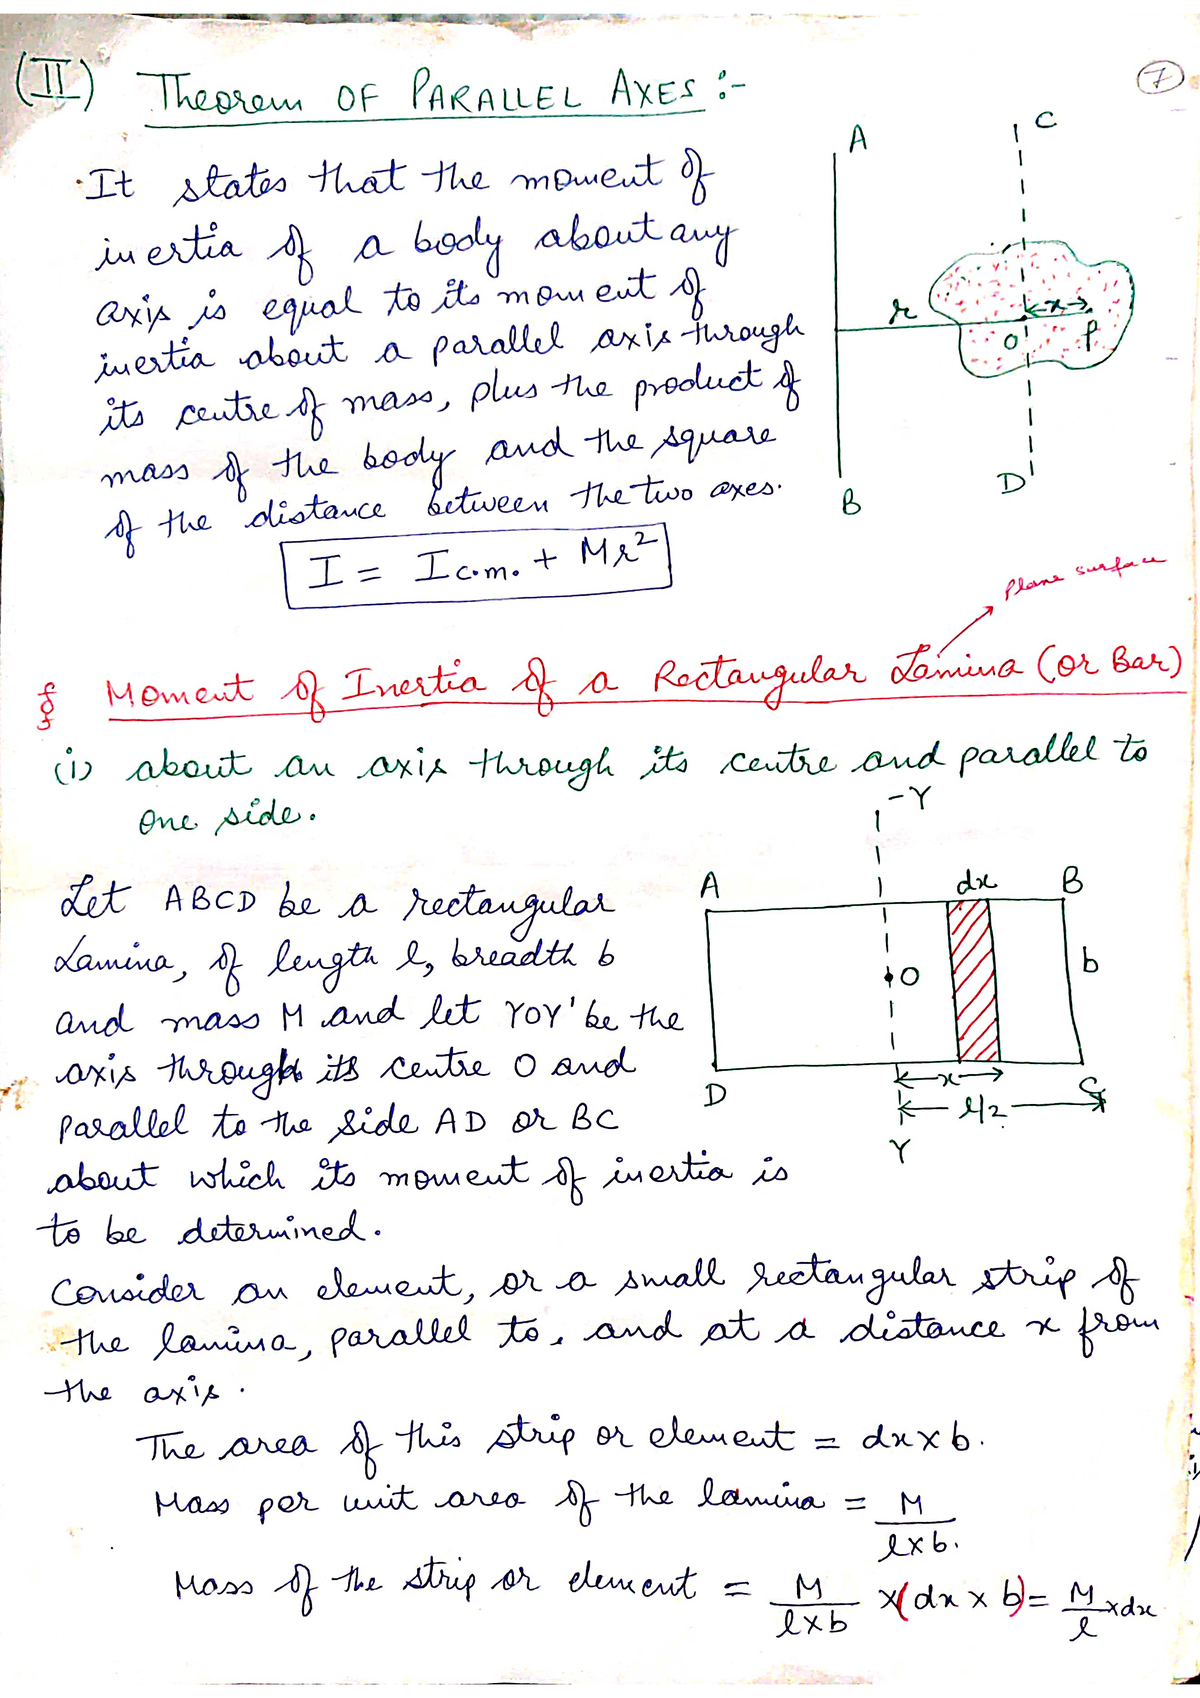 (II) Theorem OF PARALLEL AXES :-
7
It states that the moment of
inertia of a body about any
axis is equal to its moment of
inertia about a parallel axis through
its centre of mass, plus the product of
mass of the body and the square
of the distance between the two axes.
I = Ic.m. + Mr²
A
C
r
x
O
P
B
D
Plane surface
Moment of Inertia of a Rectangular Lamina (or Bar)
(i) about an axis through its centre and parallel to
One side.
Let ABCD be a rectangular
Lamina, of length l, breadth b
and mass M and let YOY' be the
axis through its centre O and
Parallel to the side AD or BC
about which its moment of inertia is
to be determined.
-Y
A
dx
B
O
b
D
x
C
l/2
Y
Consider an element, or a small rectangular strip of
the lamina, parallel to, and at a distance x from
the axis.
The area of this strip or element = dx x b.
Mass per unit area of the lamina = M
l x b.
Mass of the strip or element = M/l x b x (dx x b) = M/l x dx